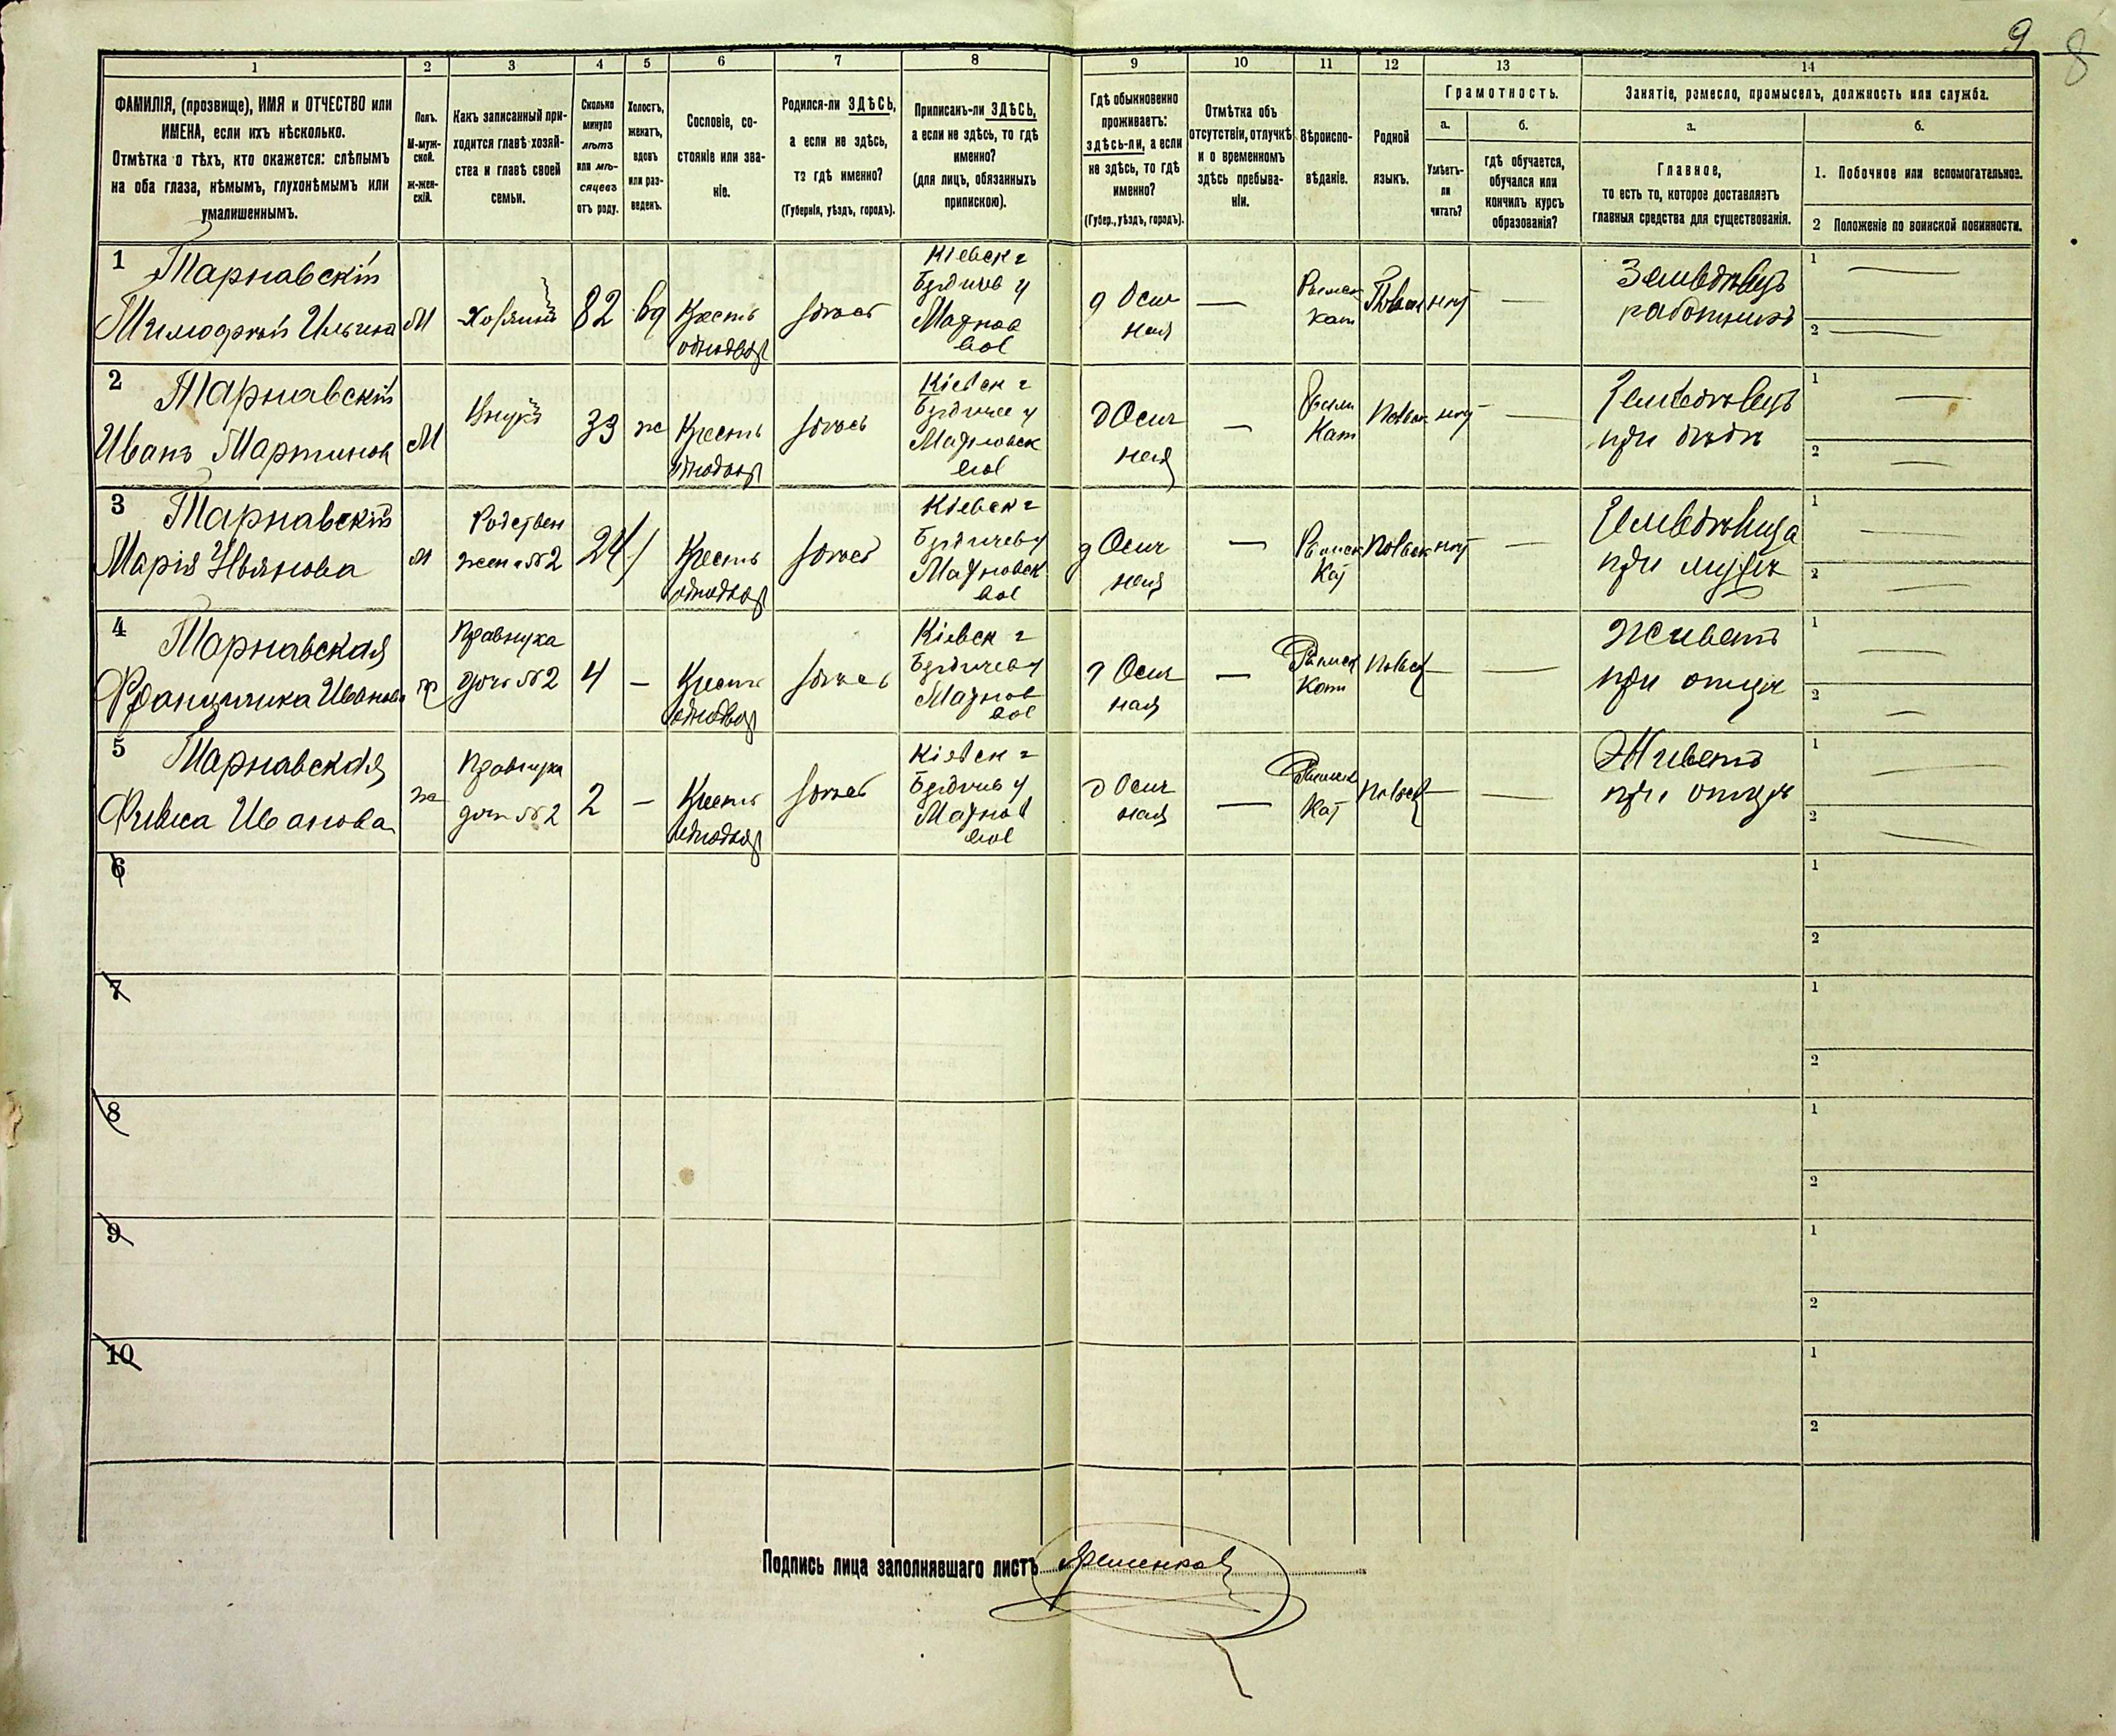 9
8
1
2
3
4
5
6
7
8
9
10
11
12
13
14
ФАМИЛІЯ, (прозвище), ИМЯ и ОТЧЕСТВО или
ИМЕНА, если ихъ нѣсколько.
Отмѣтка о тѣхъ, кто окажется: слѣпымъ
на оба глаза, нѣмымъ, глухонѣмымъ или
умалишеннымъ.
Полъ.
М-муж-
ской.
ж-жен-
скій.
Какъ записанный при-
ходится главѣ хозяй-
ства и главѣ своей
семьи.
Сколько
минуло
лѣтъ
или мѣ-
сяцевъ
отъ роду.
Холостъ,
женатъ,
вдовъ
или раз-
веденъ.
Сословіе, со-
стояніе или зва-
ніе.
Родился-ли ЗДѢСЬ,
а если не здѣсь,
то гдѣ именно?
(Губернія, уѣздъ, городъ).
Приписанъ-ли ЗДѢСЬ,
а если не здѣсь, то гдѣ
именно?
(для лицъ, обязанныхъ
припискою).
Гдѣ обыкновенно
проживаетъ:
здѣсь-ли, а если
не здѣсь, то гдѣ
именно?
(Губер., уѣздъ, городъ).
Отмѣтка объ
отсутствіи, отлучкѣ
и о временномъ
здѣсь пребыва-
ніи.
Вѣроиспо-
вѣданіе.
Родной
языкъ.
Грамотность.
а.
Умѣетъ-
ли
читать?
б.
гдѣ обучается,
обучался или
кончилъ курсъ
образованія?
Занятіе, ремесло, промыселъ, должность или служба.
а.
Главное,
то есть то, которое доставляетъ
главныя средства для существованія.
б.
1. Побочное или вспомогательное.
2 Положеніе по воинской повинности.
1
Тарнавскій
Тимофей Ильина
М
Хозяинъ
82
вд
Кресть
однодвор
здѣсь
Кіевск г
Бердичев у
Махнов
вол
д Осич
ная
Римск
Кат
Польск
нѣт
—
Земледѣлецъ
работникъ
1
2
2
Тарнавскій
Иванъ Мартинов
М
Внукъ
33
ж
Кресть
однодвор
здѣсь
Кіевск г
Бердичев у
Махновск
вол
д Осич
ная
—
Римск
Кат
Польск
нѣт
—
Земледѣлецъ
при дѣдѣ
1
2
3
Тарнавскій
Марія Ивянова
м
Родствен
жена №2
24
Кресть
однодвор
здѣсь
Кіевск г
Бердичев у
Махновск
вол
д Осич
ная
—
Римск
Кат
Польск
нѣт
—
Земледѣлица
при мужѣ
1
2
4
Тарнавская
Францишка Иванова
ж
Правнука
дочь №2
4
—
Кресть
однодвор
здѣсь
Кіевск г
Бердичев у
Махнов
вол
д Осич
ная
—
Римск
Кат
Польск
—
—
Живетъ
при отцѣ
1
2
5
Тарнавская
Ивановa
ж
Правнука
доч №2
2
—
Кресть
однодвор
здѣсь
Кіевск г
Бердичев у
Махнов
вол
д Осич
ная
—
Римск
Кат
Польск
—
—
Живетъ
при отцѣ
1
2
6
1
2
7
1
2
8
1
2
9
1
2
10
1
2
Подпись лица заполнявшаго листъ